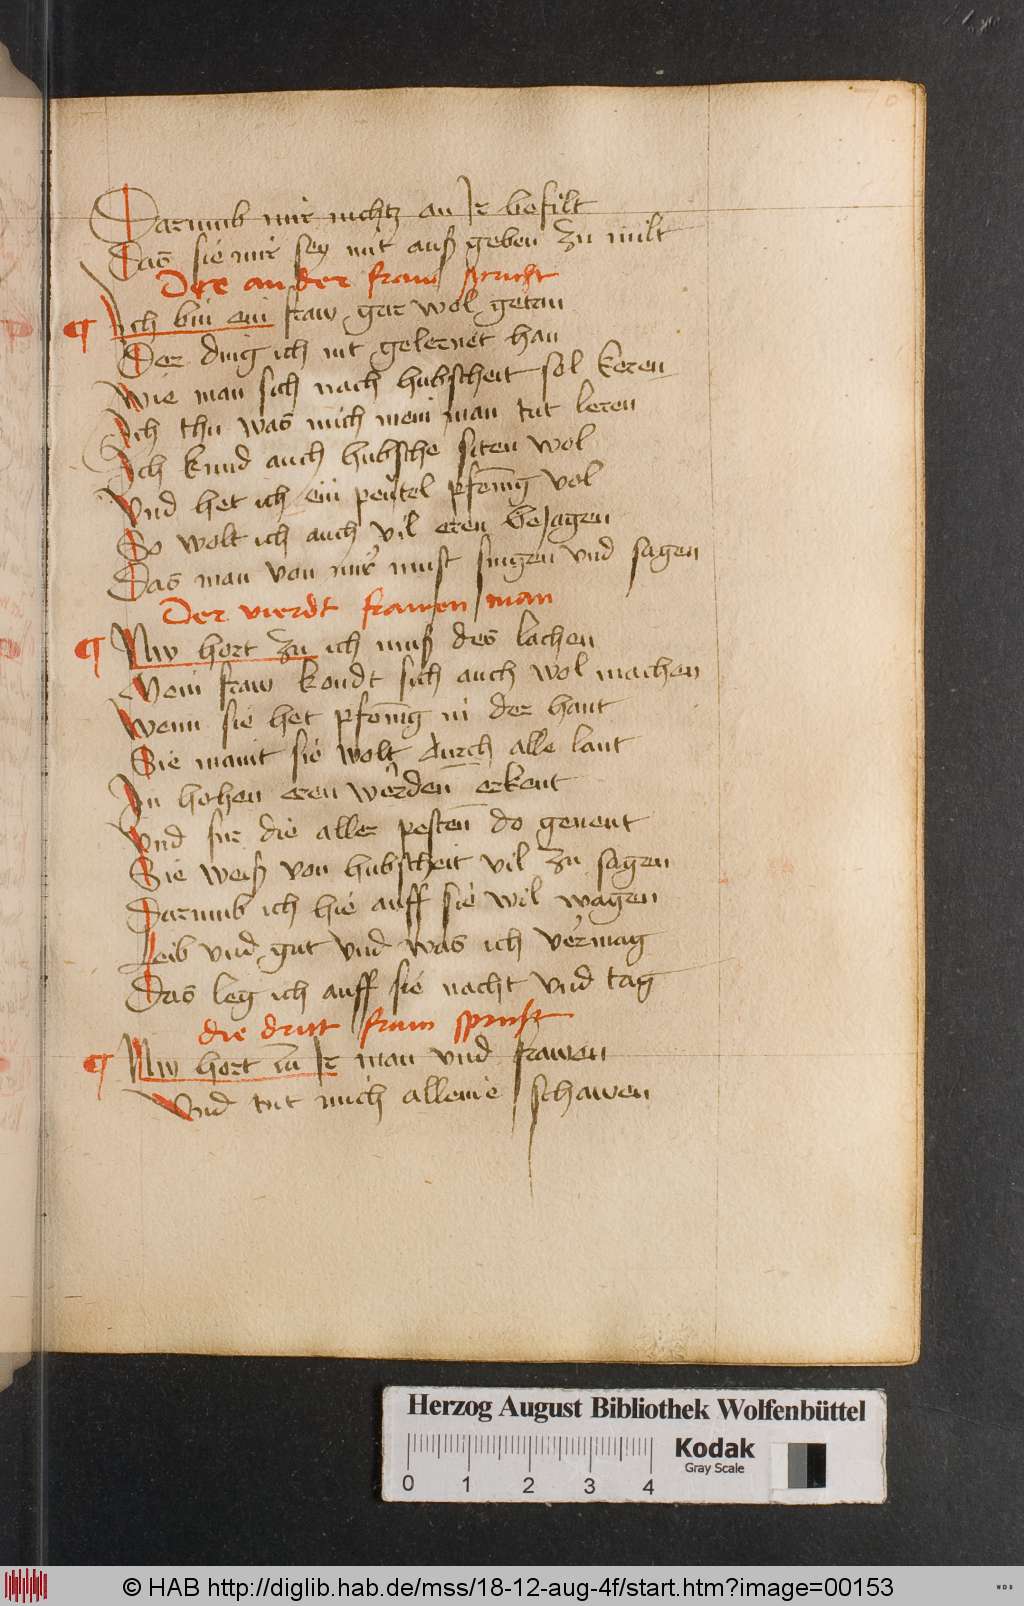 Darumb mir nichtz an Ir befilt
Das sie mir sey mit auß geben zu milt
Die ander fraw spricht
Ich bin ein fraw gar wol getan
Der ding ich nit gelernet han
Wie man sich nach hubscheit sol keren
Ich thu was mich mein man tut leren
Ich kund auch hubsche siten wol
Vnd het ich ein peutel pfenig vol
So wolt ich auch vil eren bejagen
Das man von mir must singen vnd sagen
Der vierdt frawen man
Nw hort zu ich muß des lachen
Mein fraw kondt sich auch wol machen
Wenn sie het pfenig in der hant
Sie maint sie wolt durch alle lant
In hohen eren werden erkent
Vnd fur die aller pesten do genent
Sie weiß von hubscheit vil zu sagen
Darumb ich hie auff sie wil wagen
Leib vnd gut vnd was ich vermag
Das leg ich auff sie nacht vnd tag
die dritt fraw spricht
Nw hort zu Ir man vnd frawen
Vnd tut mich alleine schawen
Herzog August Bibliothek Wolfenbüttel
Kodak
Gray Scale
0 1 2 3 4
© HAB http://diglib.hab.de/mss/18-12-aug-4f/start.htm?image=00153